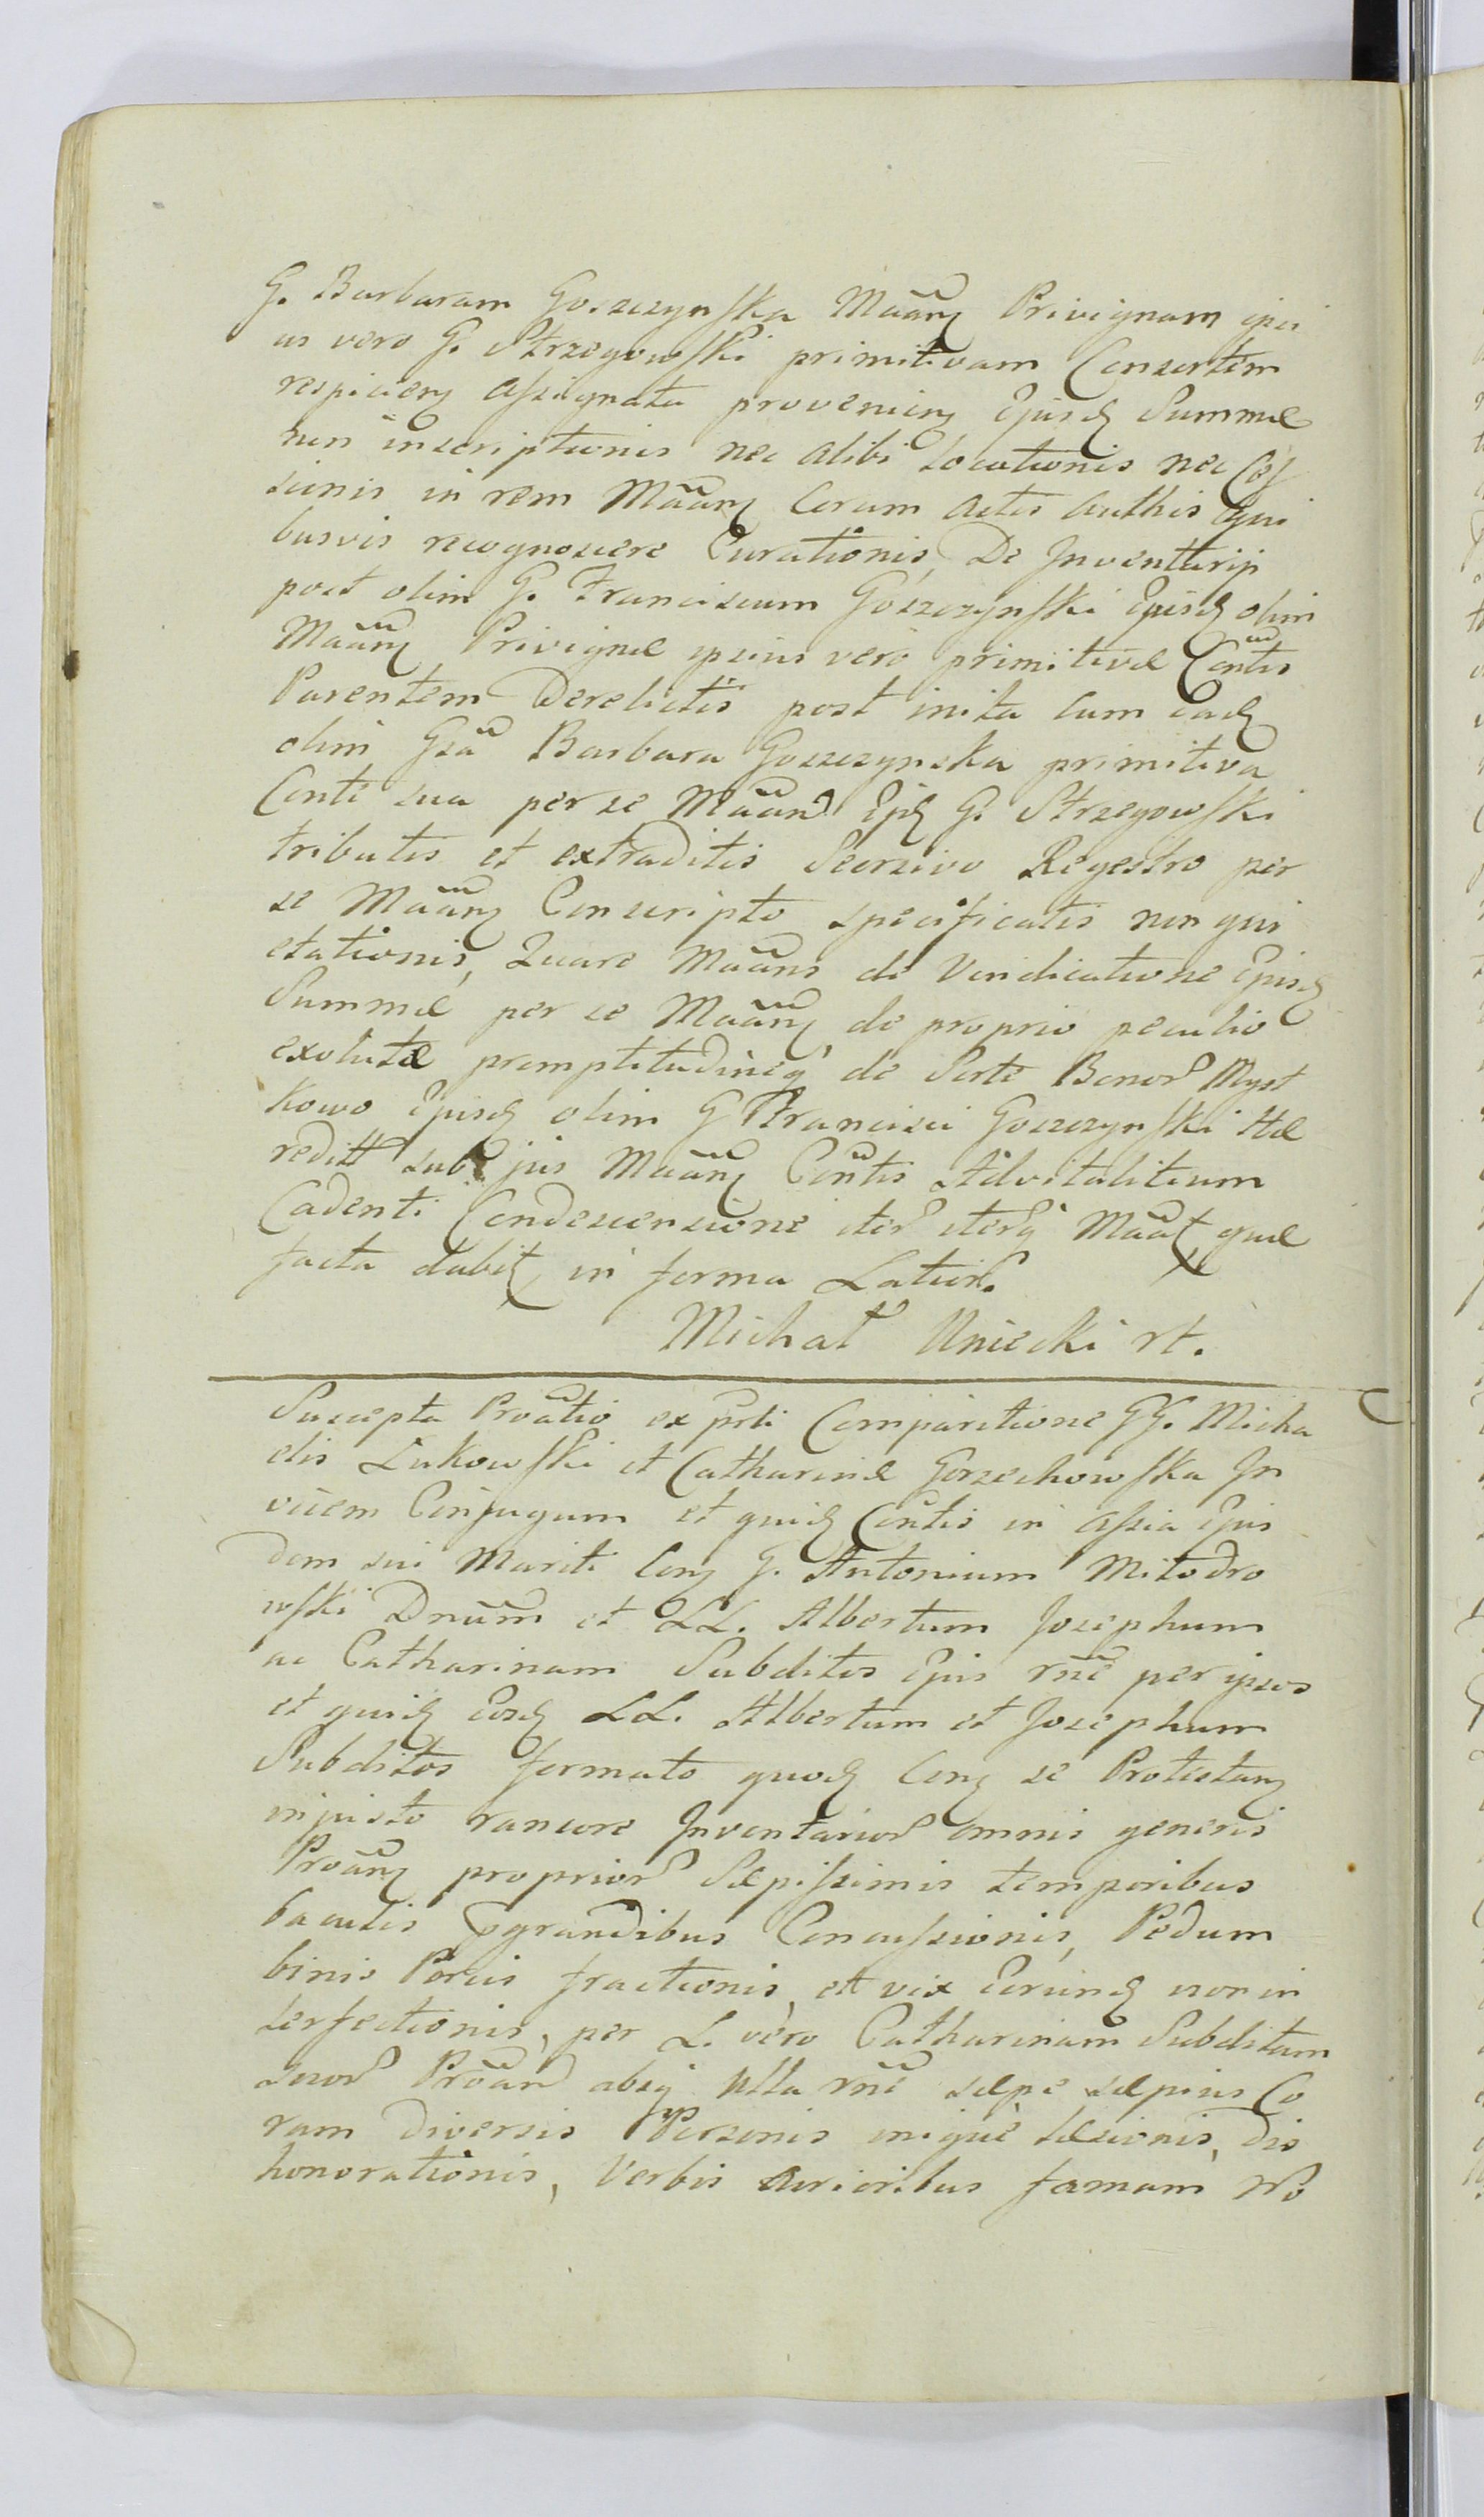 G. Barbaram Goszczynska Maanẽ Privignam ipsi
us vero G. Strzegowski primitivam Consortem
respiciens assignata proveniens Ejusd Summæ
non inscriptionis nec alibi locationis nec Ces
sionis in rem Maanẽ Coram actis authis qui
busvis recognoscere Curationis, De Inventarijs
post olim G. Franciscum Goszczynski Ejusd olim
Maanẽ Privignæ ipsius vero primitivæ Contis
Parentem Derelictis post inita cum ead
olim Gsa Barbara Goszczynska primitiva
Conte sua per se Maand Ejd G. Strzegowski
tributis et extraditis Seorsivo Regestro per
se Maanẽ Conscripto specificatis non qui
etationis, Quare Maans de Vindicatione Ejusd
Summæ per se Maanẽ de proprio peculio
exolutæ promptitudineq de Sorte Bonor Myst
kowo Ejusd olim G Francisci Goszczynski Hæ
reditt sub jus Maanẽ Contis Advitalitium
Cadenti Condescensione iter iterq Maat quæ
facta dabit in forma Latiori.
Michał Uniecki rt.
Suscepta Proatio ex prti Comparitione GG. Micha
elis Lukowski et Catharinæ Gorzechowska In
vicem Conjugum et quid Contis in assia Ejus
dem sui Mariti Con G. Antonium Mitodro
wski Dnum et LL. Albertum Josephum
ac Catharinam Subditos Ejus rne per ipsos
et quid Eosd LL. Albertum et Josephum
Subditos formato quod Con se Protestan
injusto rancore Inventarior omnis generis
Proanẽ proprior Sæpissimis temporibus
baculis grandibus Concussionis, Pedum
binis Porcis fractionis, et vix Eorund non in
terfectionis, per L. vero Catharinam Subditam
suor Proand absq ulla rne sæpe sæpius Co
ram diversis Personis inique læsionis, dis
honorationis, Verbis durioribus famam No